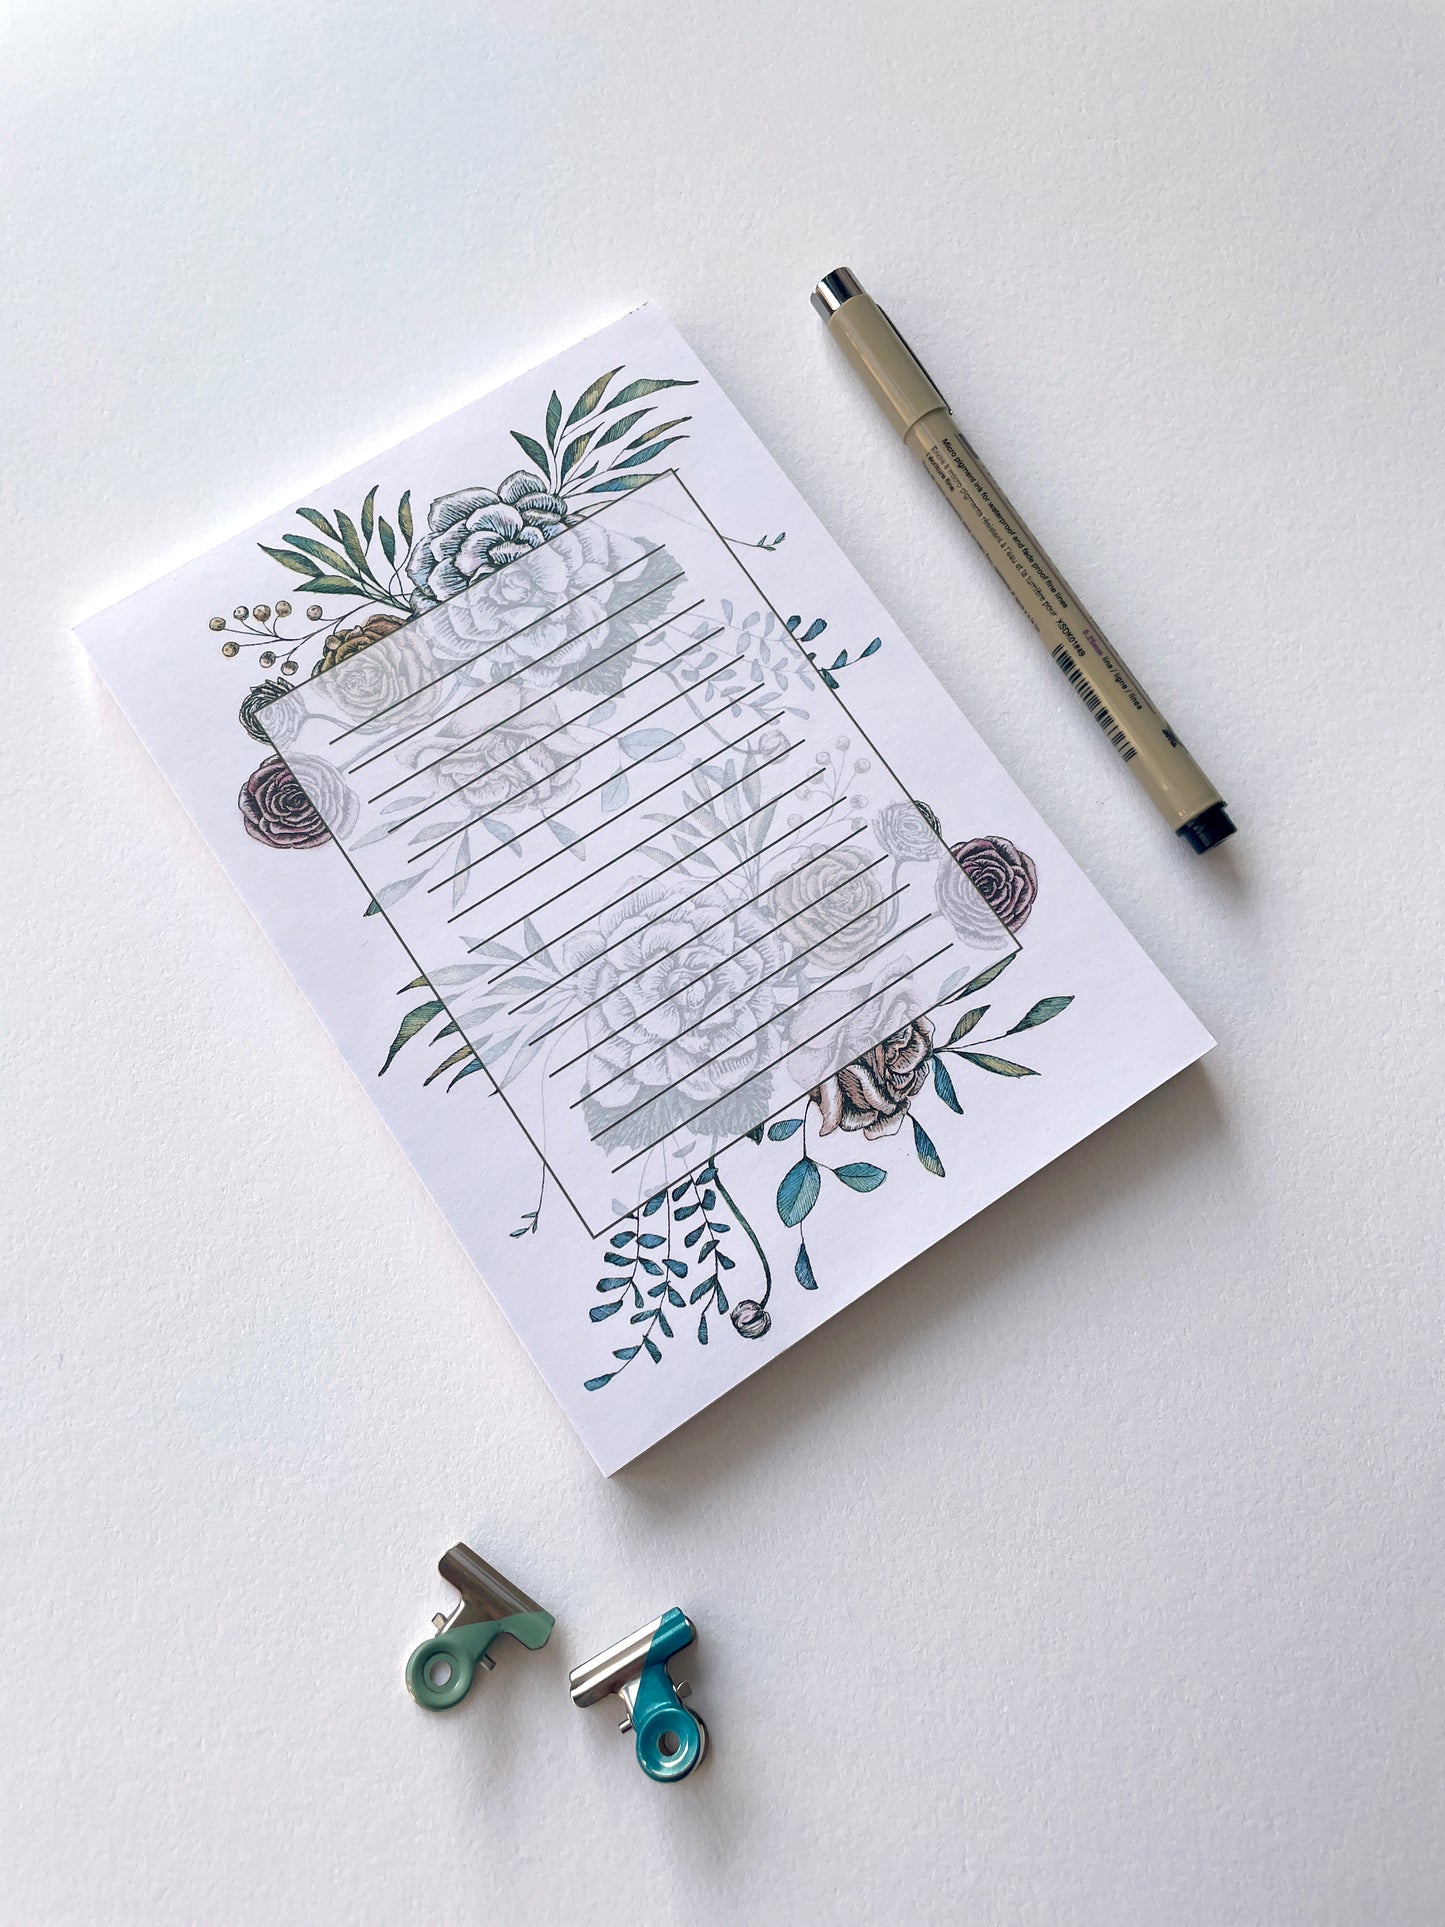 Micro pigment ink for waterproof and fade proof fine lines
Encre à micro pigments résistant à l'eau et la lumière pour
l'écriture fine
XSDK01#49
0.25mm line / ligne / línea